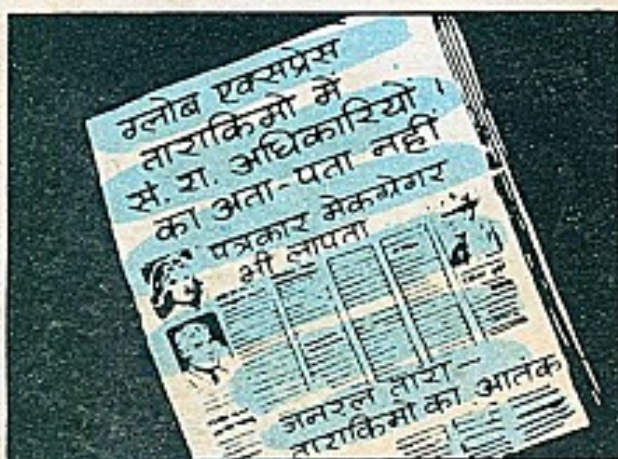 ग्लोब एक्सप्रेस
ताराकिमो में
सं. रा. अधिकारियों
का अता-पता नहीं
पत्रकार मेकग्रेगर
भी लापता
जनरल तारा-
ताराकिमो का आतंक